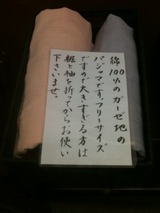 綿100%のガーゼ地の
パジャマです。フリーサイズ
ですので大きすぎる方は
裾と袖を折ってからお使い
下さいませ。